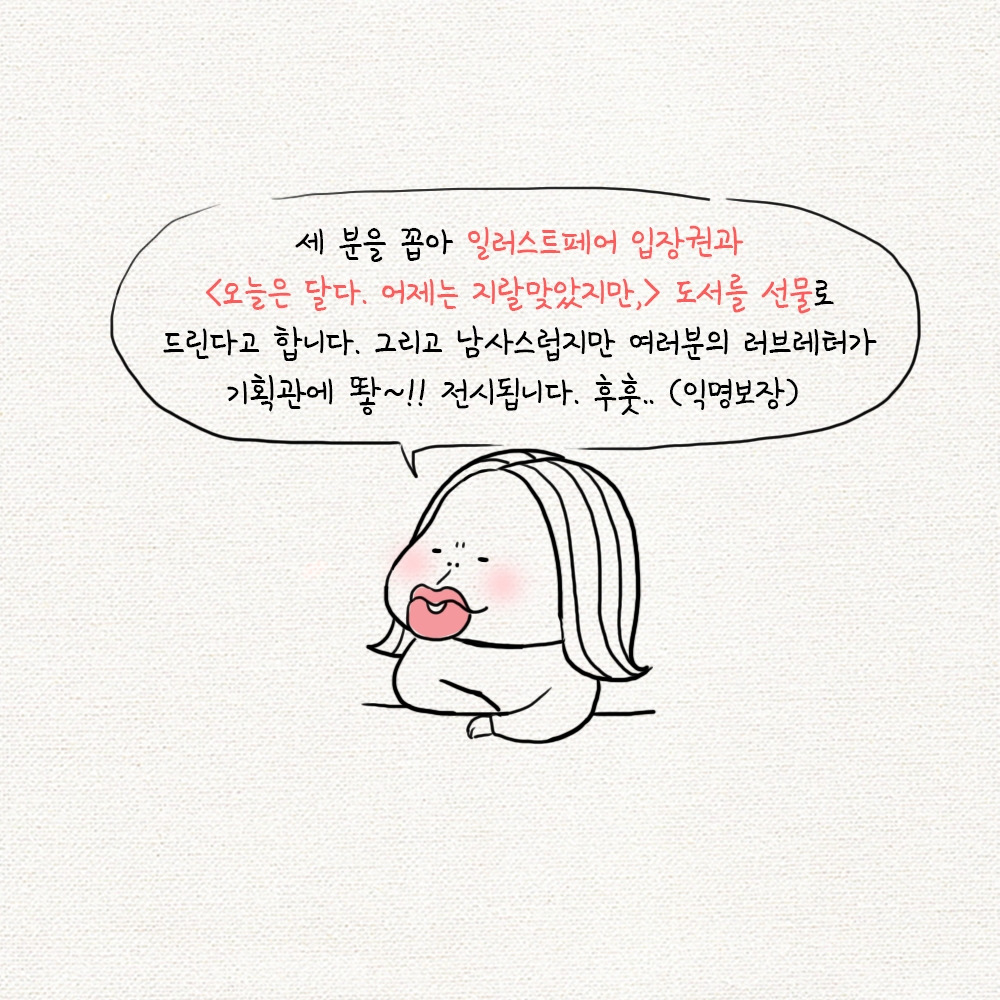 세 분을 꼽아 일러스트페어 입장권과
<오늘은 달다. 어제는 지랄맞았지만,> 도서를 선물로
드린다고 합니다. 그리고 남사스럽지만 여러분의 러브레터가
기획관에 똻~!! 전시됩니다. 후훗.. (익명보장)